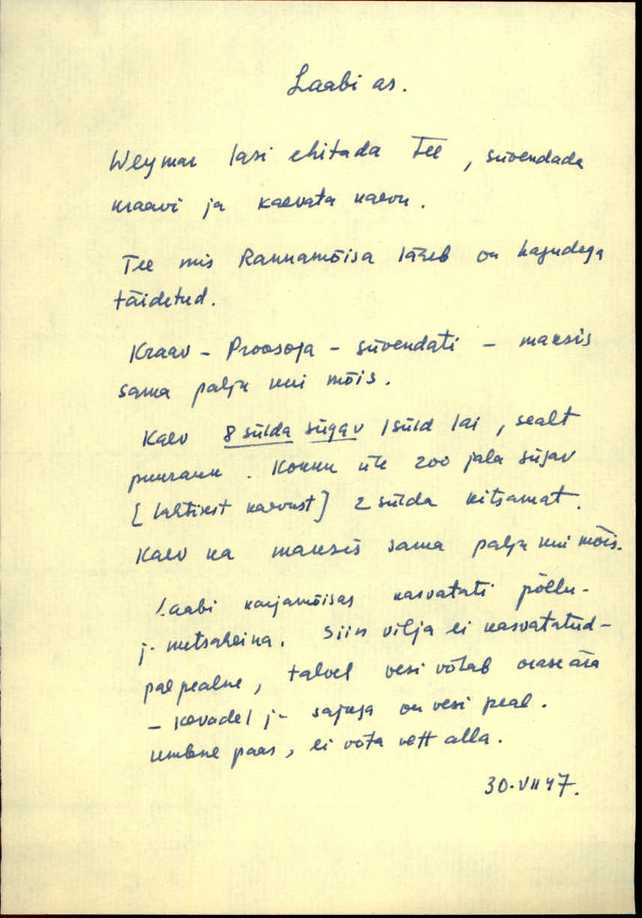 Laabi as.
Weymar lasi ehitada Tee, süvendada
kraavi ja kaevata kaevu.
Tee mis Rannamõisa läheb on hagudega
täidetud.
Kraav - Proosoja - süvendati - maksis
sama palju kui mõis.
Kaev 8 sülda sügav 1 süld lai, sealt
puurauk. Kokku üle 200 jala sügav
[lahtisest kaevust] 2 sülda kitsamat.
Kaev ka maksis sama palju kui mõis.
Laabi karjamõisas kasvatati põllu-
j- metsaheina. Siin vilja ei kasvatatud-
paepealne, talvel vesi võtab orase ära
- kevadel j- sajuga on vesi peal.
umbne paas, ei võta vett alla.
30.VII 47.